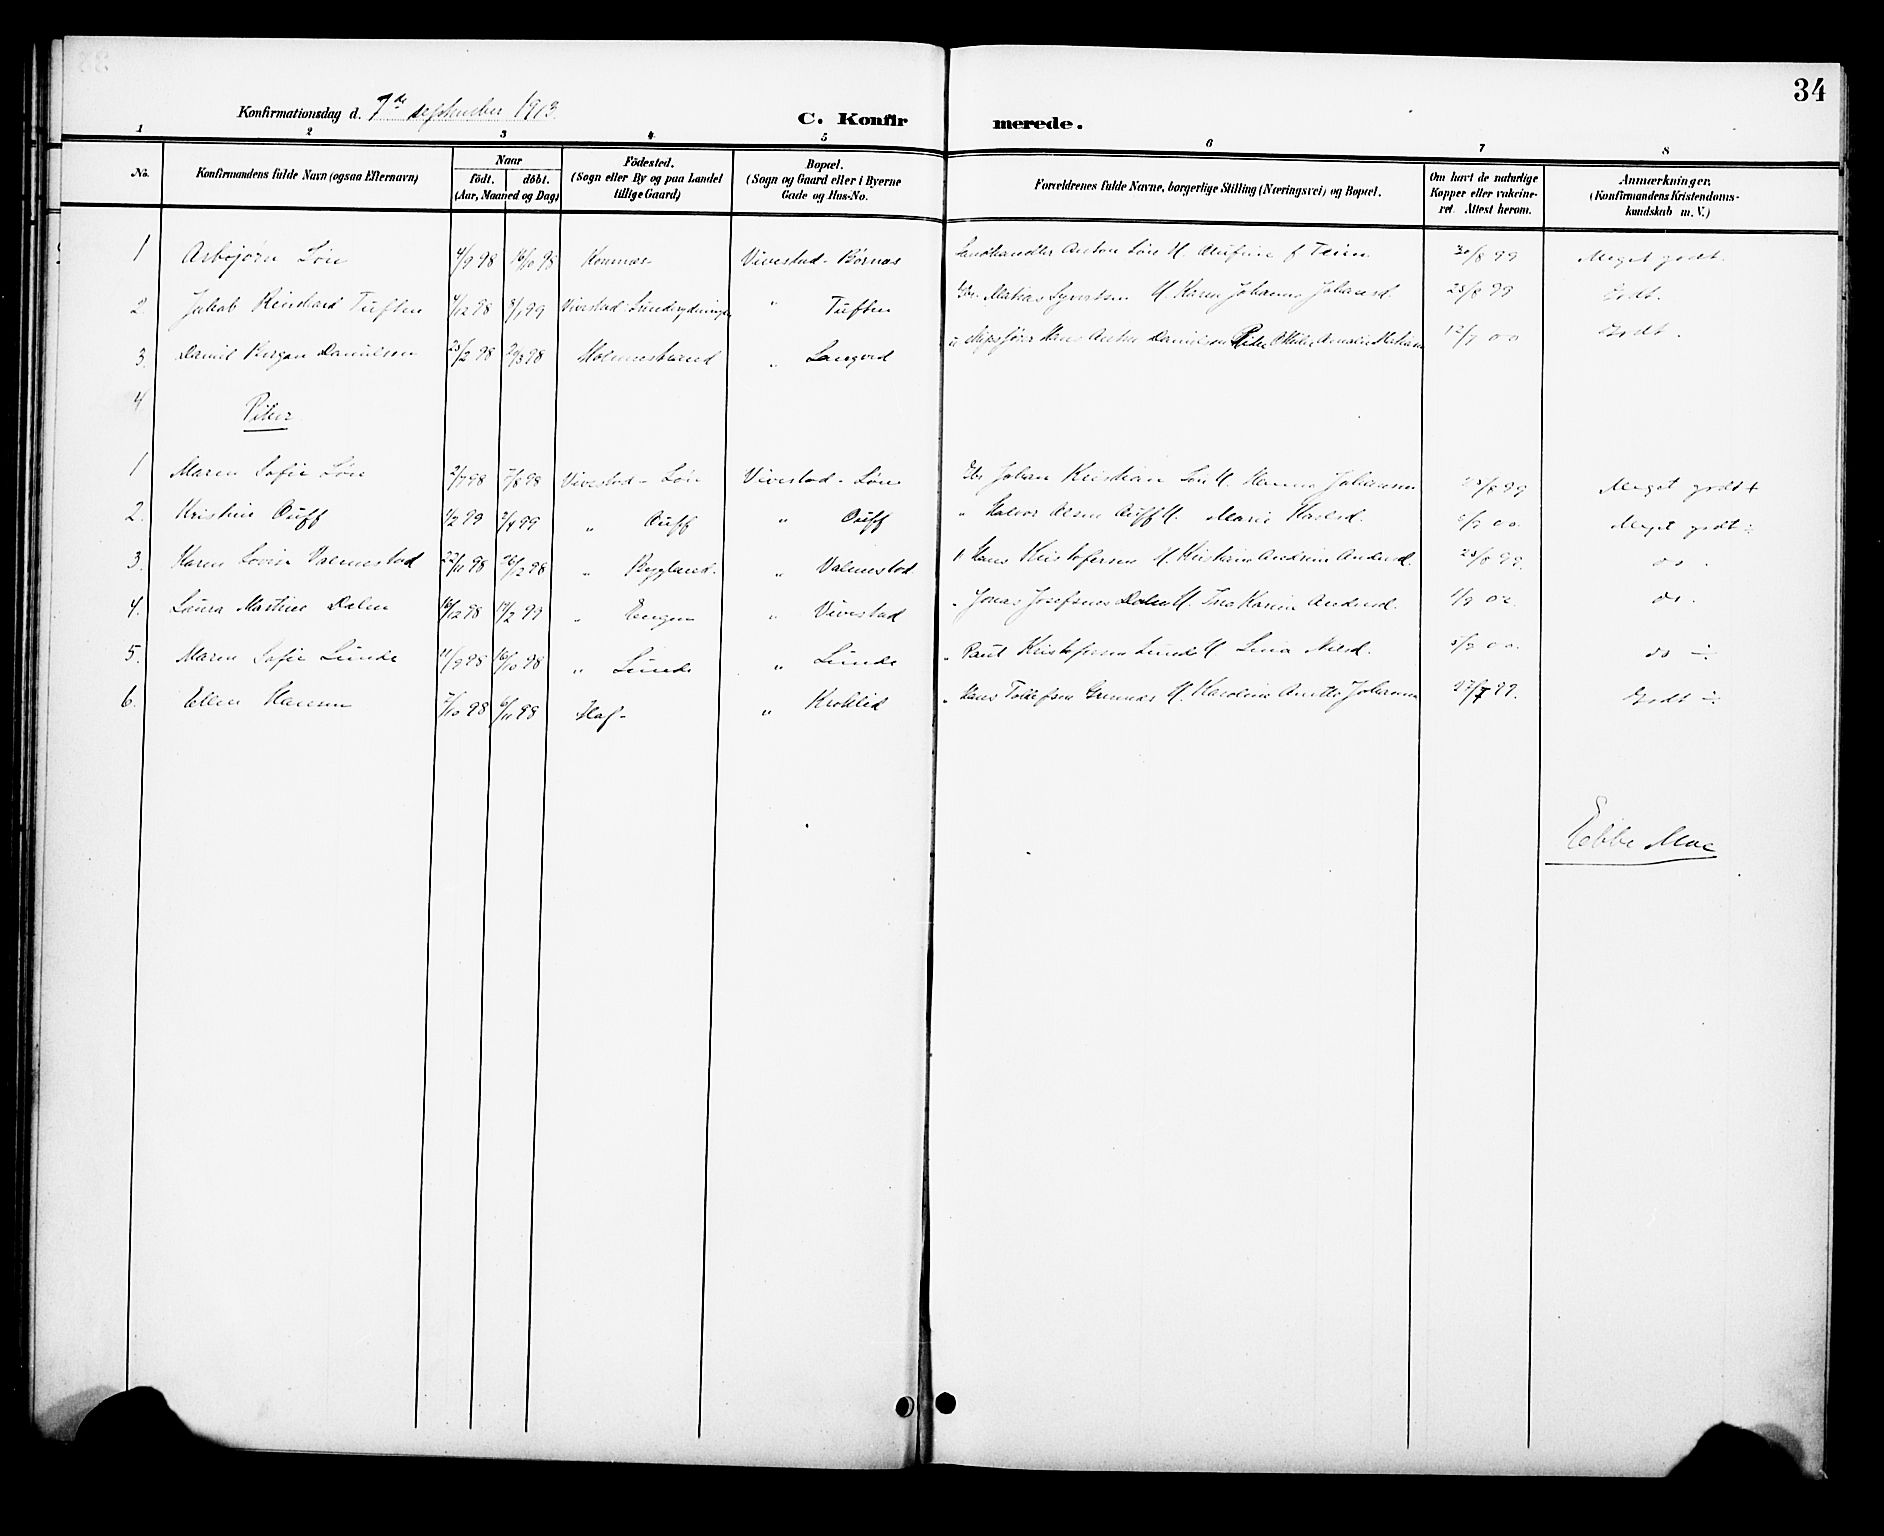 34
Konfirmationsdag d. 7de september 1913.
C. Konfirmerede.
1 2 3 4 5 6 7 8
No. Konfirmandens fulde Navn (ogsaa Efternavn) Naar födt. döbt. (Aar, Maaned og Dag) Födested. (Sogn eller By og paa Landet tillige Gaard) Bopæl. (Sogn og Gaard eller i Byerne Gade og Hus-No. Forældrenes fulde Navne, borgerlige Stilling (Næringsvei) og Bopæl. Om havt de naturlige Kopper eller vaccineret. Attest herom. Anmærkninger. (Konfirmandens Kristendomskundskab m. V.)
1 Asbjørn Lön 4/9 98 16/10 98 Vivestad - Bornas Landhandler Anton Lön 30/8 99 Meget godt.
2 Jakob Reinhard Tuften 4/12 98 8/1 99 Vivestad " Tuften Gbr. Matias Syvertsen M. Karen Johanne Johansd. 25/8 99 Godt.
3. Daniel Danielsen 23/2 98 29/3 98 Holmestrand " Langved Hans Anton Danielsen 12/7 00 Godt.
4 Piker
1 Maren Sofie Lön 2/7 98 7/8 98 Vivestad - Lön Vivestad - Lön Gbr Johan Kristian Lön M. Hanna Johannesen 25/8 99 Meget godt +
2. Kristine Auff 1/2 99 3/4 99 " Auff " Auff " Halvor Olsen Auff M. Marie Karlsd. 00 Meget godt ÷
3. Karen Lovise Valmestad 22/11 98 26/12 98 " " Valmestad " Hans Kristofersen M. Kristiane Andrine Andersd. 25/8 99. do.
4. Laura Martine Dalen 10/12 98 19/2 99 " Engen " Vivestad " Jonas Josefsnes Dalen M. Ina Karine Andersd. do.
5. Maren Sofie Lunde 11/9 98 16/10 98 " Lunde " Lunde " Paul Kristofersen Lunde M Lina Nilsd. 5/9 00. do ÷
6. Ellen Hansen 7/10 98 6/11 98 Hof - " Kroklid " Hans Tollefsen M. Karoline Anette Johannes 27/7 99. Godt ÷
Ebbe Moe